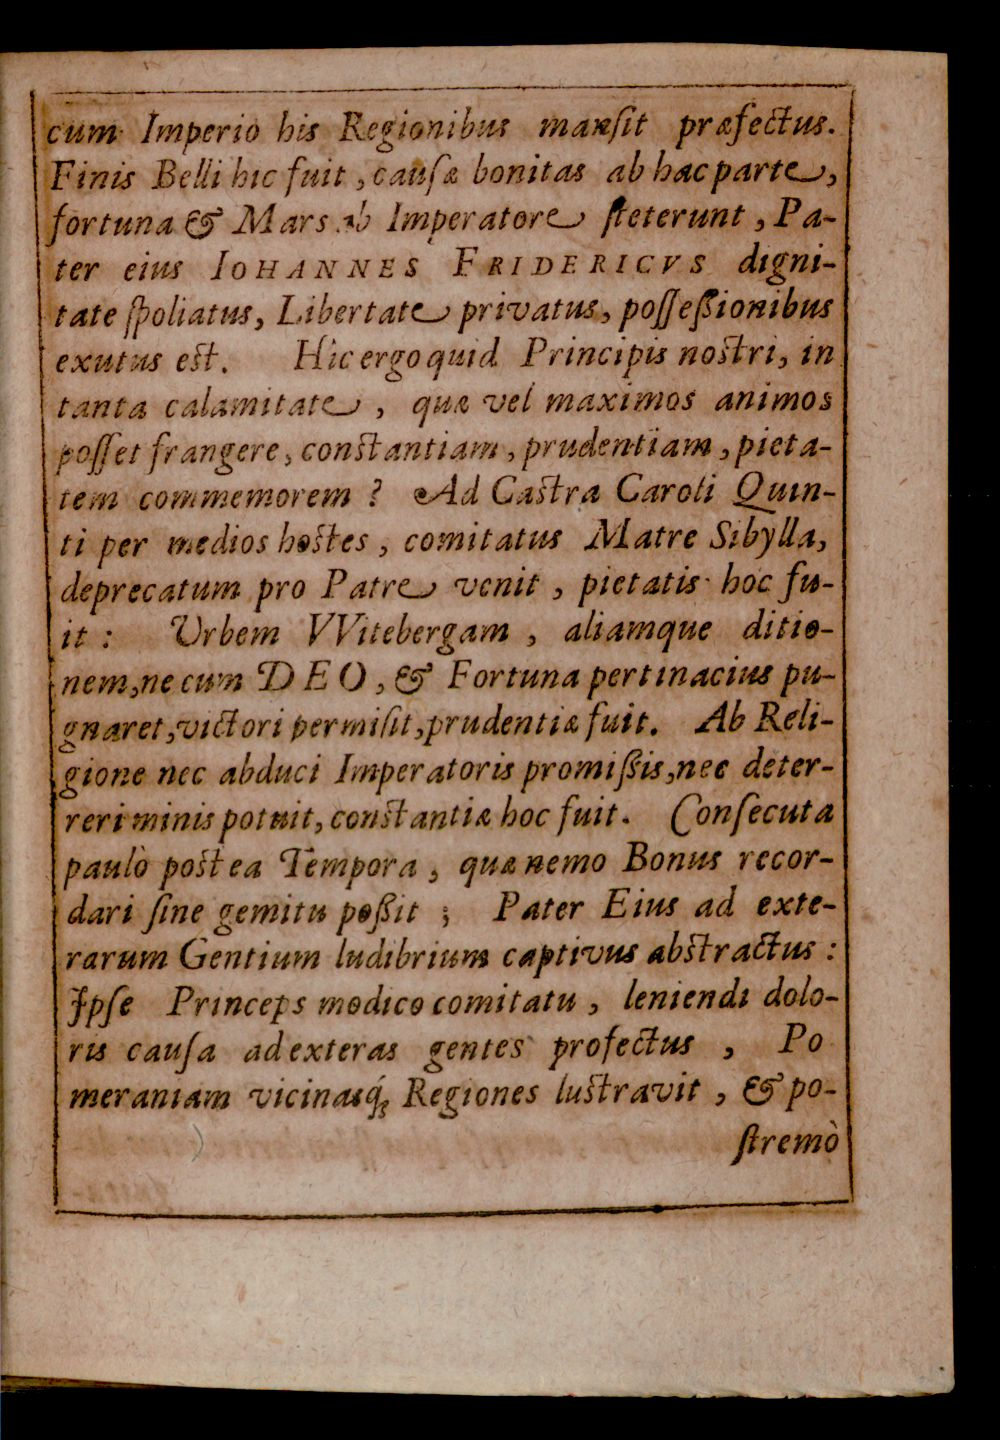 cum Imperio his Regionibus manſit præfectus.
Finis Belli hic fuit, cauſæ bonitas ab hac parte,
fortuna & Mars ab Imperatore ſteterunt, Pa-
ter eius IOHANNES FRIDERICVS digni-
tate ſpoliatus, Libertate privatus, poſſeßionibus
exutus est. Hîc ergo quid Principis nostri, in
tanta calamitate, quæ vel maximos animos
poſſet frangere, constantiam, prudentiam, pieta-
tem commemorem? Ad Castra Caroli Quin-
ti per medios hostes, comitatus Matre Sibylla,
deprecatum pro Patre venit, pietatis hoc fu-
it: Urbem VVitebergam, aliamque ditio-
nem, ne cum DEO, & Fortuna pertinacius pu-
gnaret, victori permiſit, prudentiæ fuit. Ab Reli-
gione nec abduci Imperatoris promißis, nec deter-
reri minis potuit, constantiæ hoc fuit. Conſecuta
paulò post ea Tempora, quæ nemo Bonus recor-
dari ſine gemitu poßit; Pater Eius ad exte-
rarum Gentium ludibrium captivus abstractus:
Ipſe Princeps modico comitatu, leniendi dolo-
ris cauſa ad exteras gentes profectus, Po
meraniam vicinasq́; Regiones lustravit, & po-
ſtremò